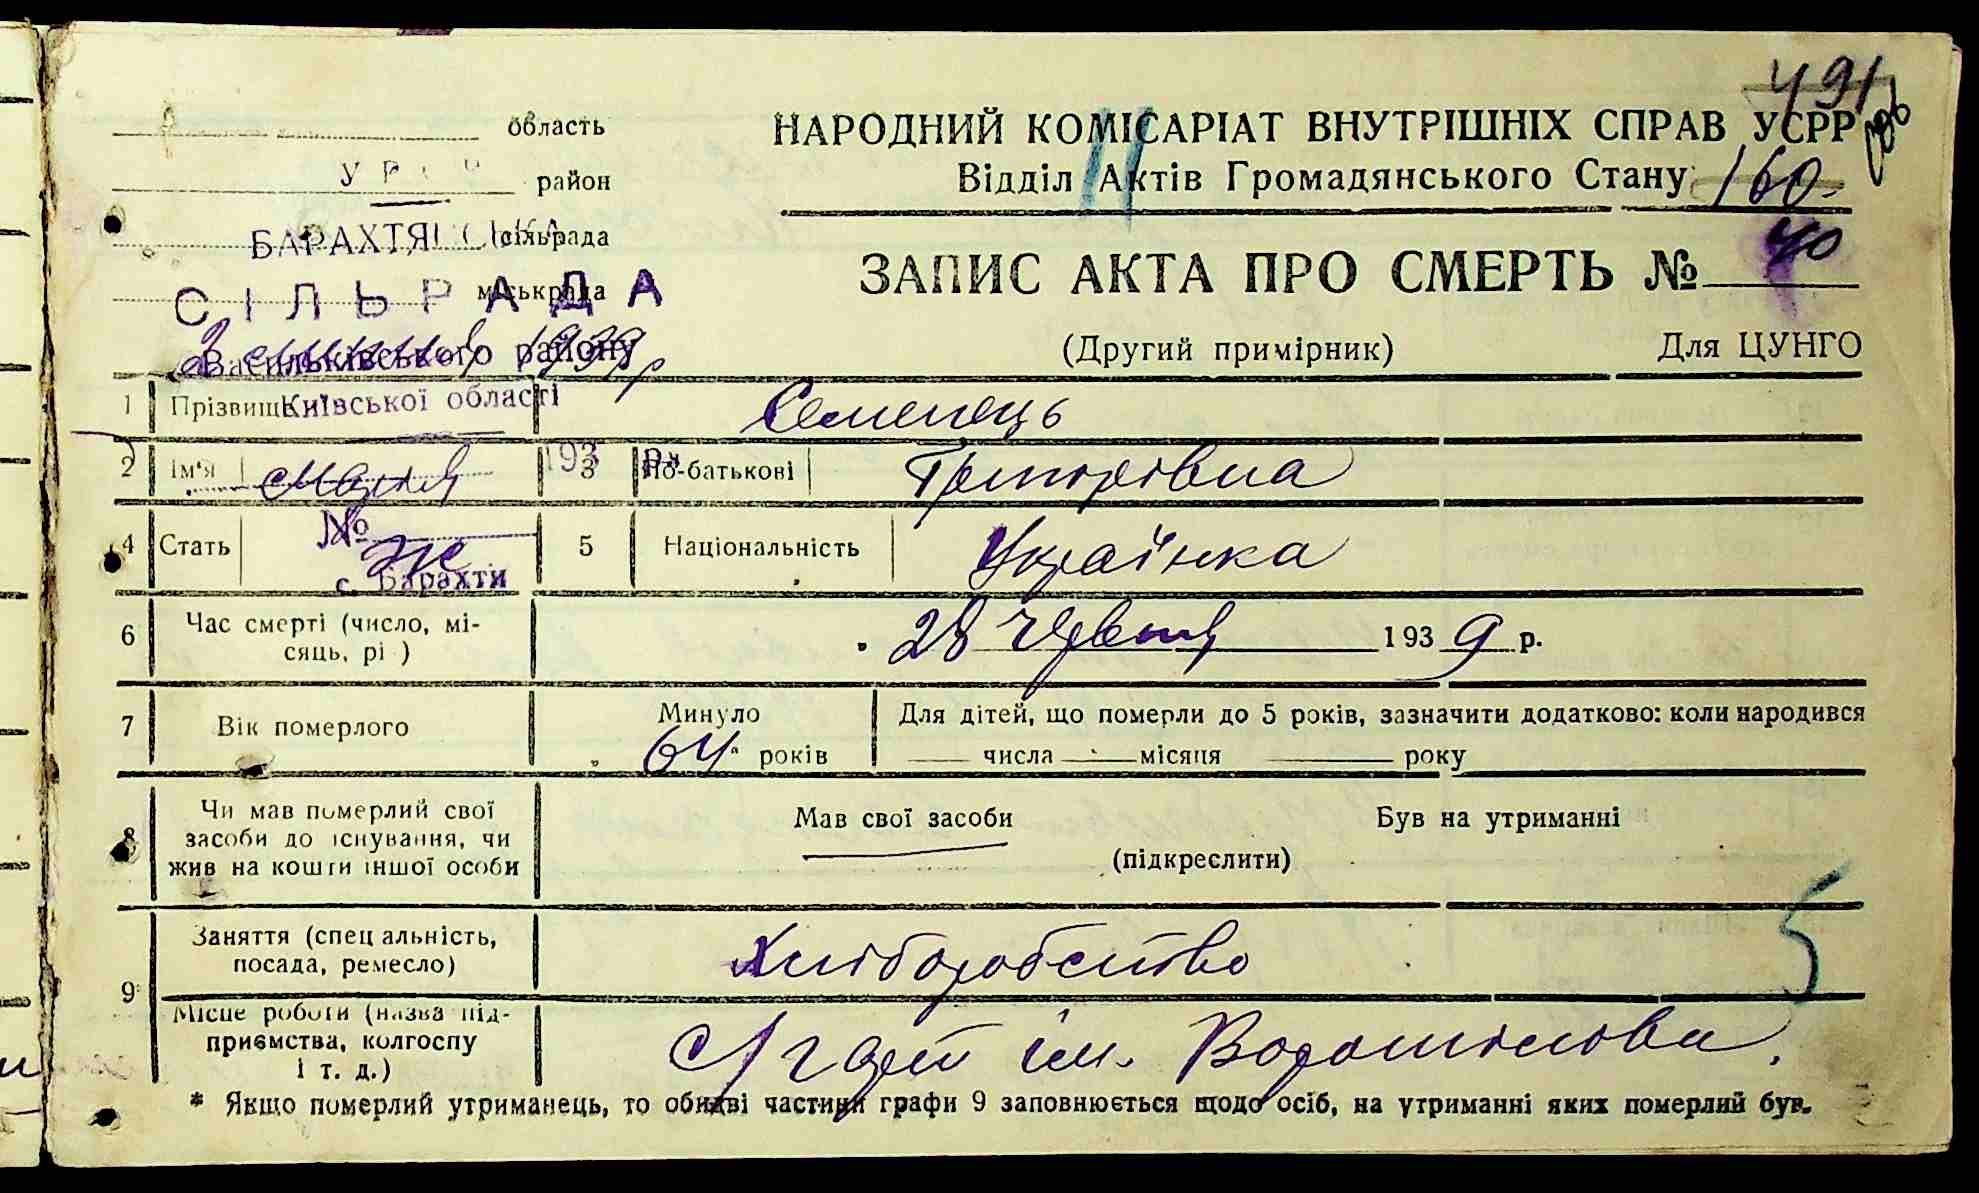 491
область
НАРОДНИЙ КОМІСАРІАТ ВНУТРІШНІХ СПРАВ УСРР
11
район
Відділ Актів Громадянського Стану 160
БАРАХТЯНСЬКА сільрада
40
ЗАПИС АКТА ПРО СМЕРТЬ №
СІЛЬРАДА міськрада
(Другий примірник) Для ЦУНГО
Васильківського району
3 липня 1939 р
1 Прізвище Київської області Семенець
2 Ім'я Марія 193 р. 3 По-батькові Григорівна
4 Стать № Ж 5 Національність Українка
с. Барахти
6 Час смерті (число, мі-
сяць, рі ) 28 червня 1939 р.
7 Вік померлого Минуло 64 років Для дітей, що померли до 5 років, зазначити додатково: коли народився
числа місяця року
8 Чи мав померлий свої
засоби до існування, чи
жив на кошти іншої особи
Мав свої засоби Був на утриманні
(підкреслити)
5
9 Заняття (спец альність,
посада, ремесло) Хліборобство
Місце роботи (назва під-
приємства, колгоспу
і т. д.) с/г арт ім. Ворошилова.
* Якщо померлий утриманець, то обидві частини графи 9 заповнюється щодо осіб, на утриманні яких померлий був.